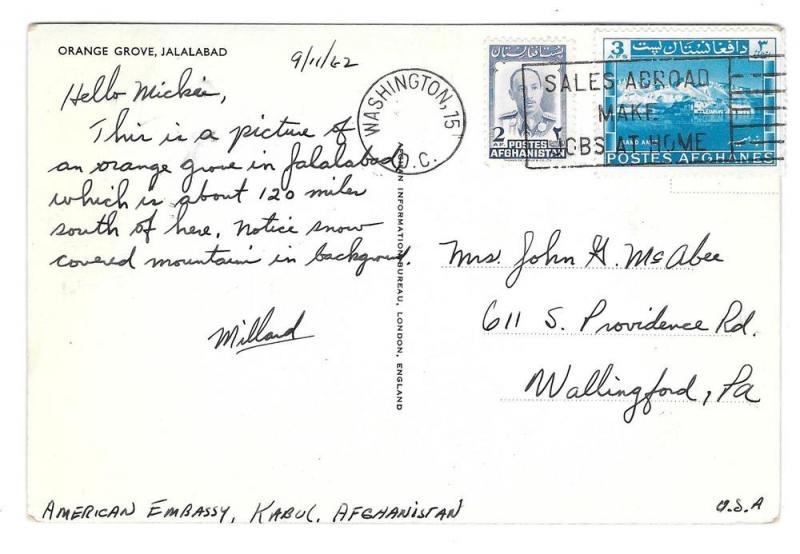 ORANGE GROVE, JALALABAD
9/11/62
Hello Mickie,
This is a picture of
an orange grove in Jalalabad
which is about 120 miles
south of here. Notice snow
covered mountain in background.
Millard
AMERICAN EMBASSY, KABUL, AFGHANISTAN
AFGHAN INFORMATION BUREAU, LONDON, ENGLAND
WASHINGTON, 15
D.C.
SALES ABROAD
MAKE
JOBS AT HOME
2
POSTES
AFGHANISTAN
٢
3
AFS
د افغانستان پست
٣
POSTES AFGHANES
Mrs. John G. McAbee
611 S. Providence Rd.
Wallingford, Pa
U.S.A